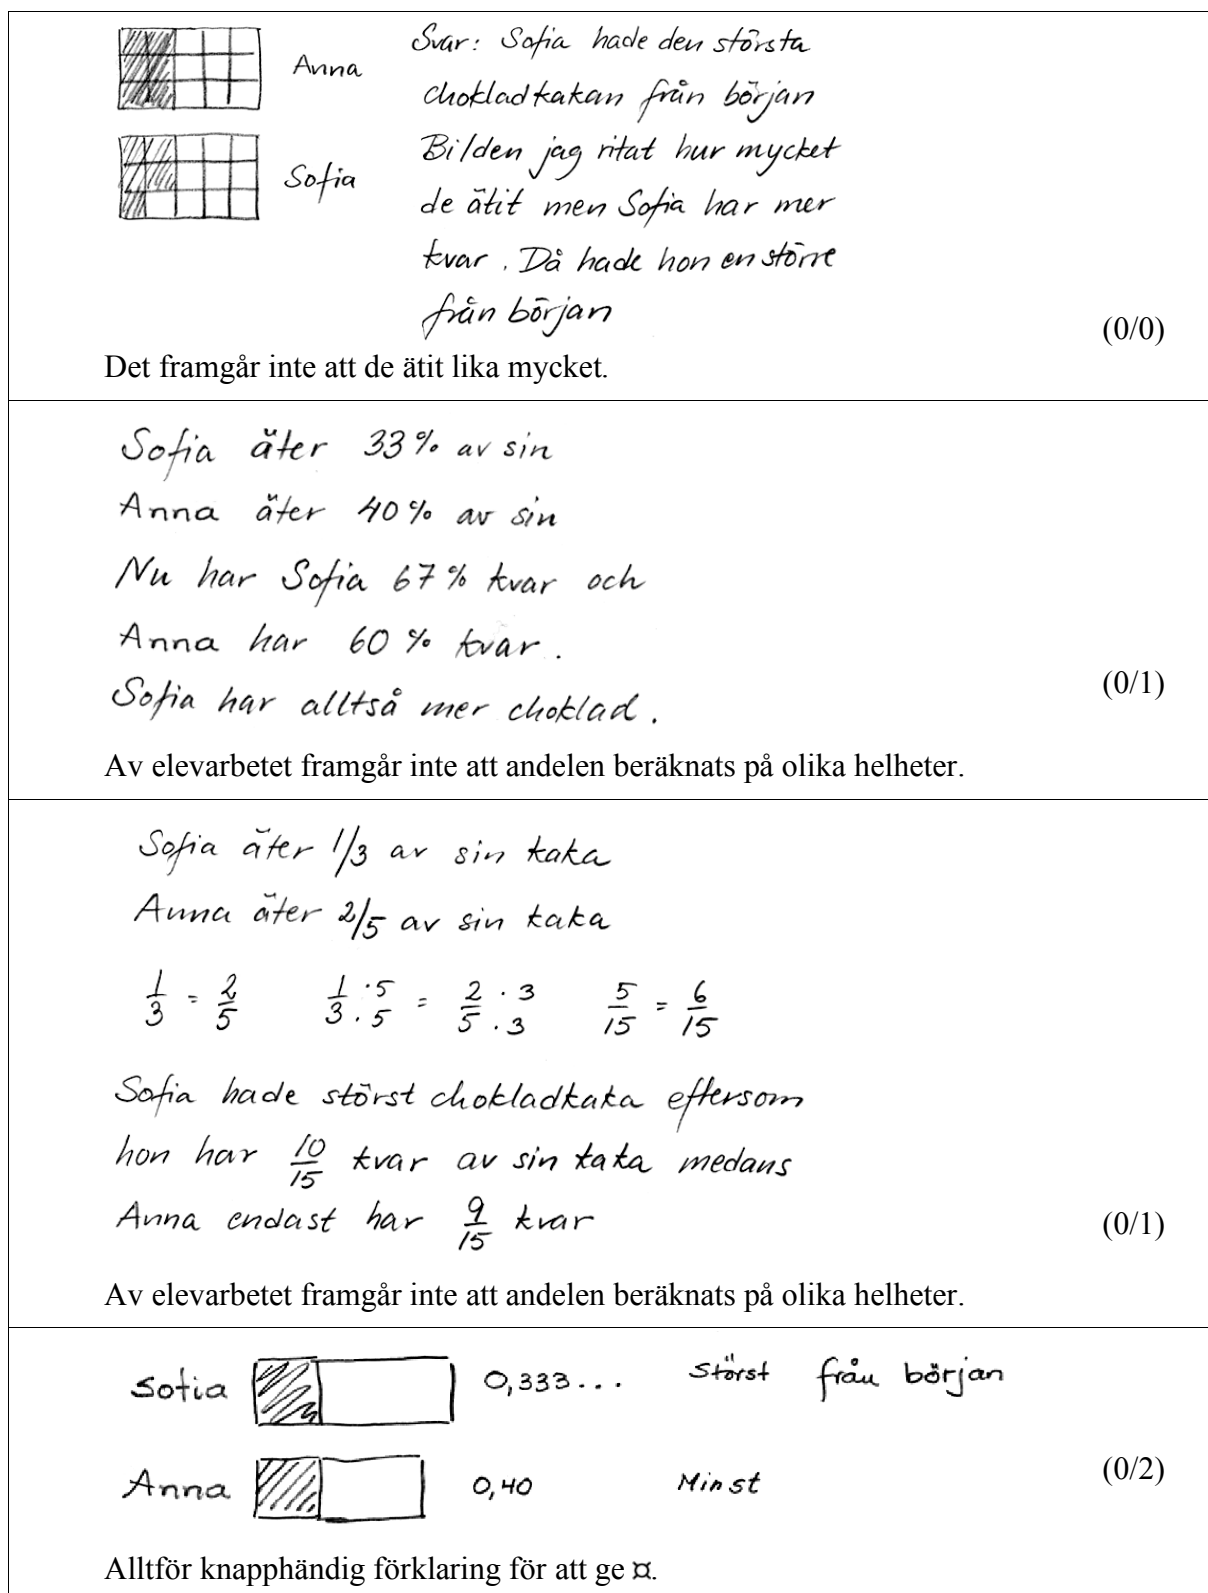 Anna
Sofia
Svar: Sofia hade den största
chokladkakan från början
Bilden jag ritat hur mycket
de ätit men Sofia har mer
kvar. Då hade hon en större
från början
(0/0)
Det framgår inte att de ätit lika mycket.
Sofia äter 33% av sin
Anna äter 40% av sin
Nu har Sofia 67% kvar och
Anna har 60% kvar.
Sofia har alltså mer choklad.
(0/1)
Av elevarbetet framgår inte att andelen beräknats på olika helheter.
Sofia äter 1/3 av sin kaka
Anna äter 2/5 av sin kaka
1/3 = 2/5 1·5/3·5 = 2·3/5·3 5/15 = 6/15
Sofia hade störst chokladkaka eftersom
hon har 10/15 kvar av sin kaka medans
Anna endast har 9/15 kvar
(0/1)
Av elevarbetet framgår inte att andelen beräknats på olika helheter.
Sofia 0,333... Störst från början
Anna 0,40 Minst
(0/2)
Alltför knapphändig förklaring för att ge ¤.